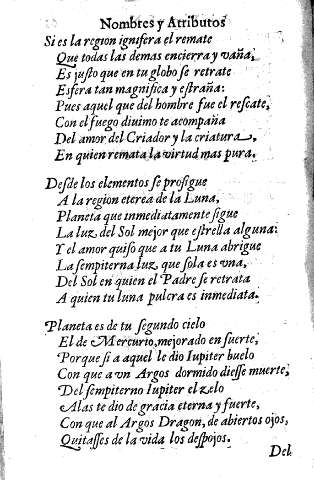 Nombres y Atributos
Si es la region ignifera el remate
Que todas las demas encierra y vaña,
Es justo que en tu globo se retrate
Esfera tan magnifica y estraña:
Pues aquel que del hombre fue el rescate,
Con el fuego diuimo te acompaña
Del amor del Criador y la criatura,
En quien remata la virtud mas pura.
Desde los elementos se prosigue
A la region eterea de la Luna,
Planeta que inmediatamente sigue
La luz del Sol mejor que estrella alguna:
Y el amor quiso que a tu Luna abrigue
La sempiterna luz, que sola es vna,
Del Sol en quien el Padre se retrata
A quien tu luna pulcra es inmediata.
Planeta es de tu segundo cielo
El de Mercurio, mejorado en suerte,
Porque si a aquel le dio Iupiter buelo
Con que a vn Argos dormido diesse muerte,
Del sempiterno Iupiter el zelo
Alas te dio de gracia eterna y fuerte,
Con que al Argos Dragon, de abiertos ojos,
Quitasses de la vida los despojos.
Del